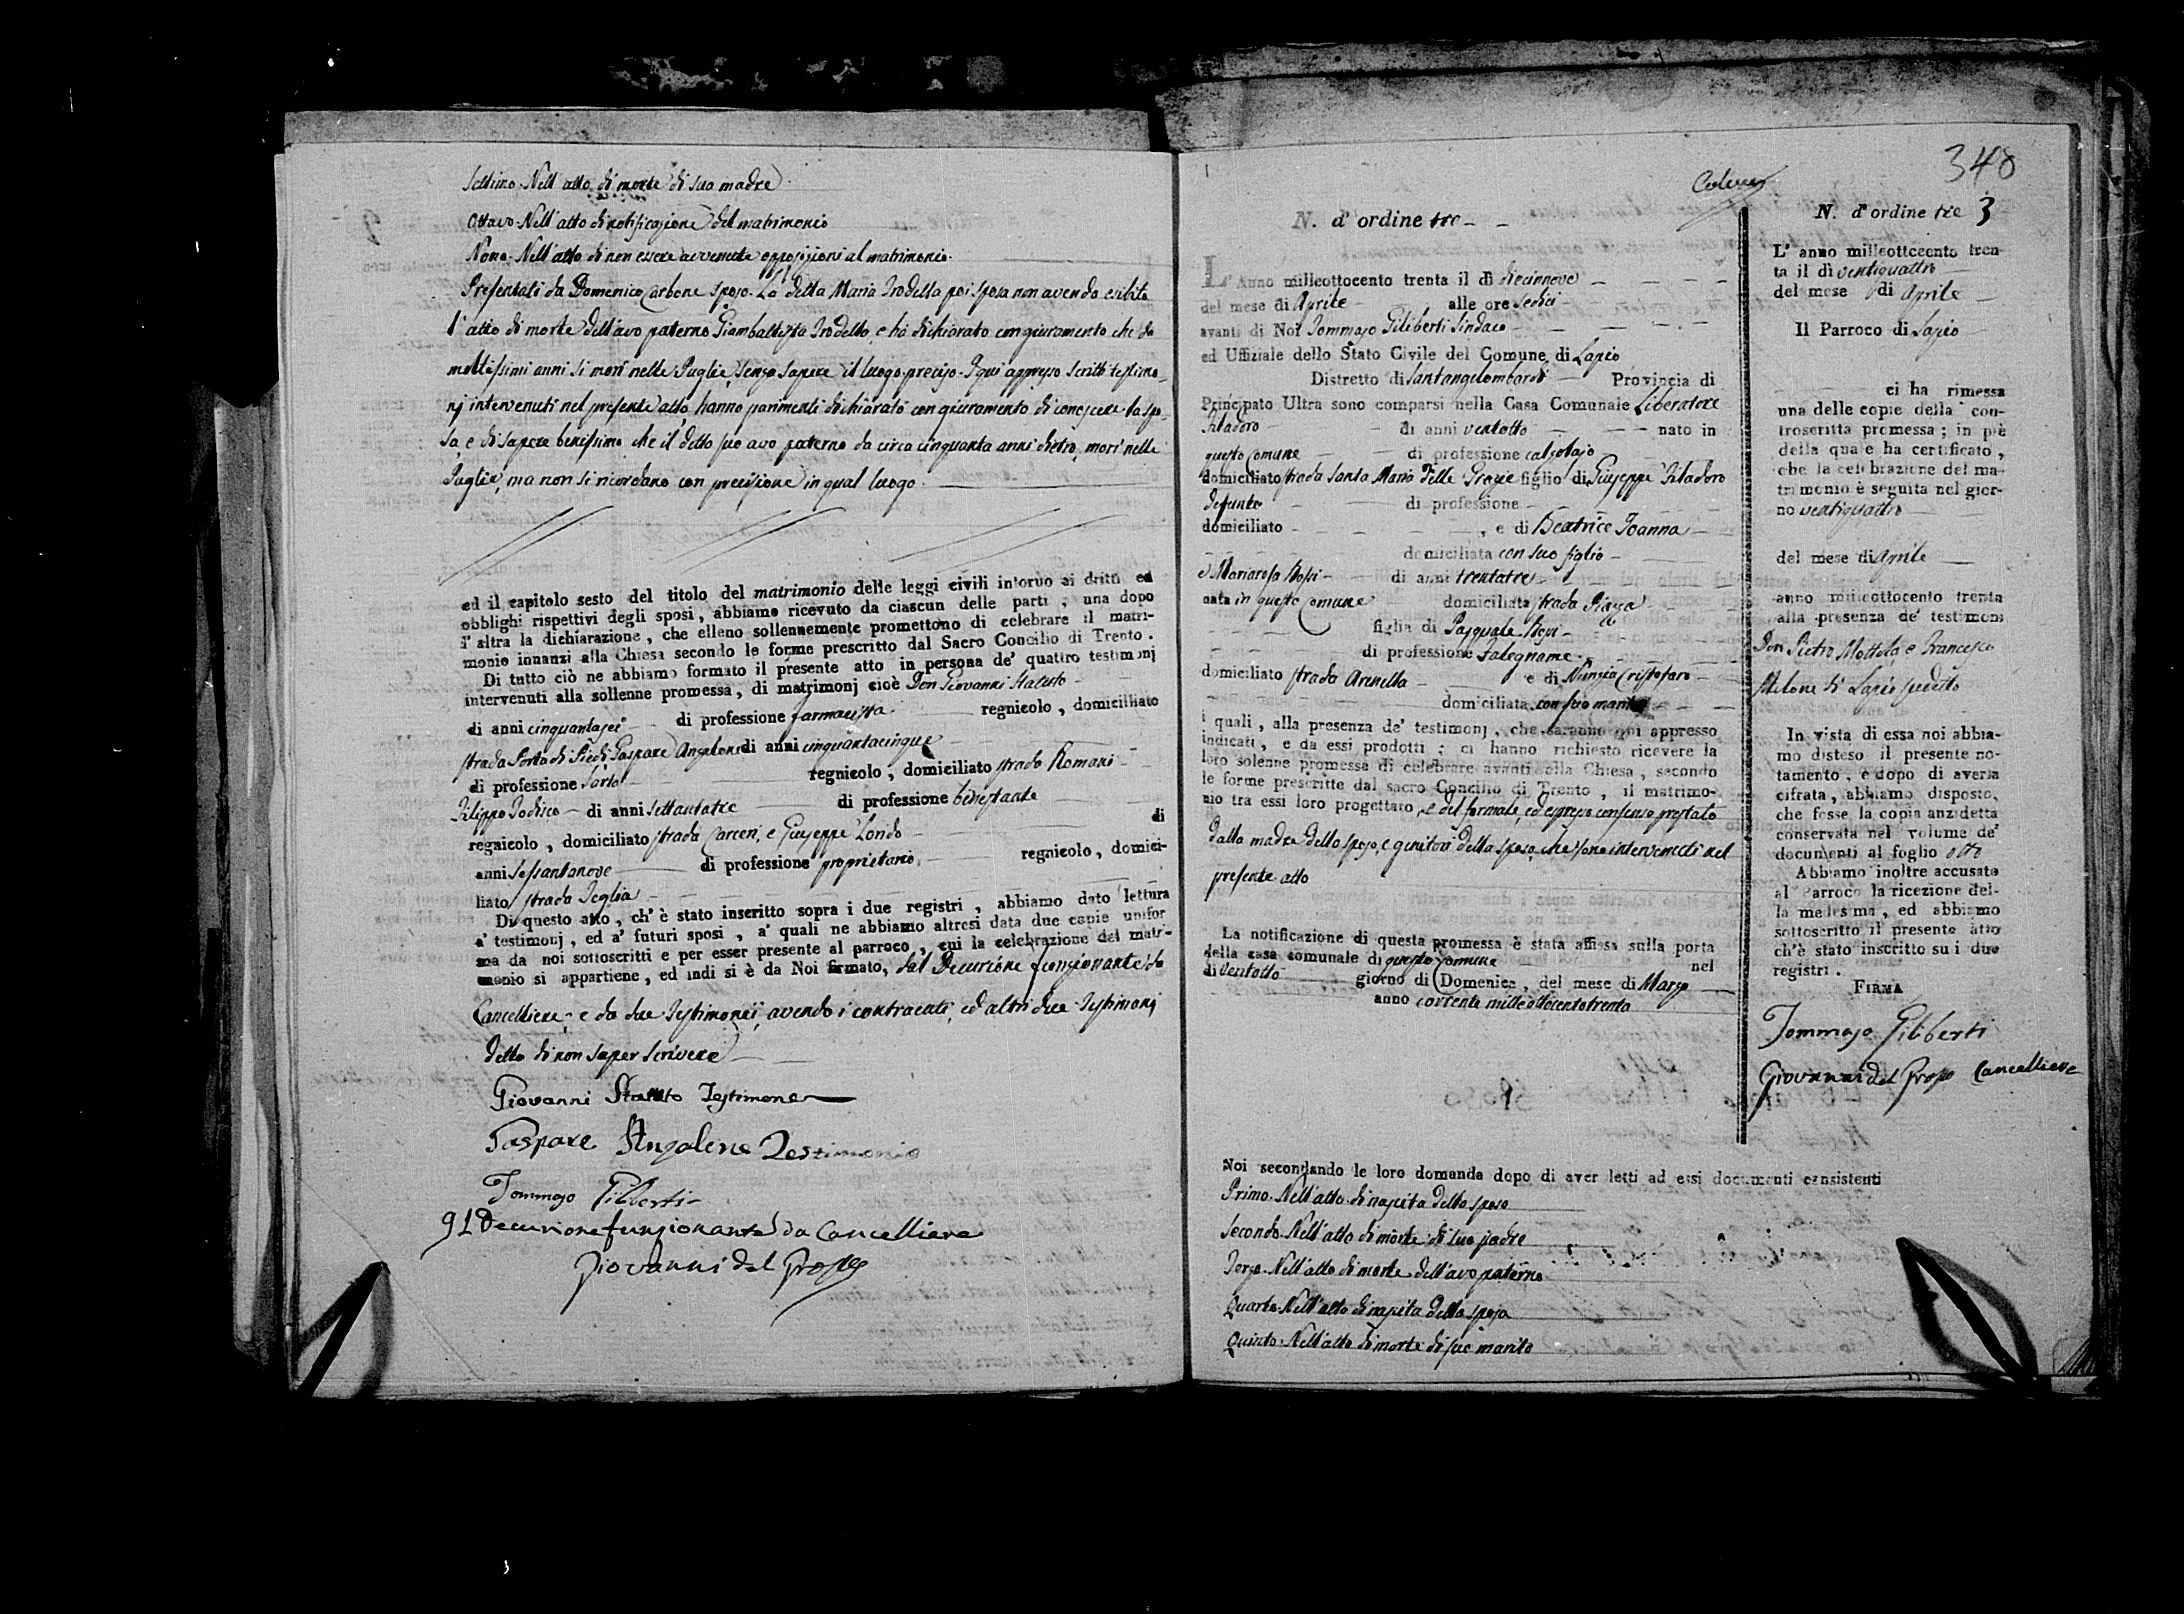 Settimo. Nell'atto di morte di sua madre.
Ottavo. Nell'atto di notificazione del matrimonio
Nono. Nell'atto di non essere avvenute opposizioni al matrimonio.
Presentati da Domenico Carbone sposo. La detta Maria Prodella poi sposa non avendo esibito
l'atto di morte dell'avo paterno Giambattista Prodello, e hà dichiarato con giuramento che da
moltissimi anni si morì nelle Puglie, senza sapere il luogo preciso. I qui appresso scritti testimo-
nj intervenuti nel presente atto, hanno parimenti dichiarato con giuramento di conoscere la spo-
sa, e di sapere benissimo che il detto suo avo paterno da circa cinquanta anni dietro, morì nelle
Puglie, ma non si ricordano con precisione in qual luogo.
ed il capitolo sesto del titolo del matrimonio delle leggi civili intorno ai dritti ed
obblighi rispettivi degli sposi, abbiamo ricevuto da ciascun delle parti, una dopo
l'altra la dichiarazione, che elleno sollennemente promettono di celebrare il matri-
monio innanzi alla Chiesa secondo le forme prescritto dal Sacro Concilio di Trento.
Di tutto ciò ne abbiamo formato il presente atto in persona de' quattro testimonj
intervenuti alla sollenne promessa, di matrimonj cioè Don Giovanni Statuto
di anni cinquantasei di professione farmacista regnicolo, domiciliato
strada Porta di Piedi, Gaspare Angelone di anni cinquantacinque
di professione Sarto regnicolo, domiciliato strada Romani
Filippo Todisco di anni settantatre di professione benestante
regnicolo, domiciliato strada Carceri, e Giuseppe Londo di
anni sessantanove di professione proprietario, regnicolo, domici-
liato strada Teglia
Di questo atto, ch'è stato inscritto sopra i due registri, abbiamo dato lettura
a' testimonj, ed a' futuri sposi, a' quali ne abbiamo altresì data due copie unifor
ma da noi sottoscritti e per esser presente al parroco, cui la celebrazione del matri-
monio si appartiene, ed indi si è da Noi firmato, dal Decurione funzionante da
Cancelliere, e da due Testimonii, avendo i contraenti, ed altri due Testimonj
detto di non saper scrivere
Giovanni Statuto Testimone
Gaspare Angelone Testimonio
Tommaso Filiberti
Il Decurione funzionante da Cancelliere
Giovanni del Grosso
348
N. d'ordine tre
L'Anno milleottocento trenta il dì diecinnove
del mese di Aprile alle ore sedici
avanti di Noi Tommaso Filiberti Sindaco
ed Uffiziale dello Stato Civile del Comune di Lapio
Distretto di Santangelombardi Provincia di
Principato Ultra sono comparsi nella Casa Comunale Liberatore
Filadoro di anni ventotto nato in
questo Comune di professione calzolajo
domiciliato strada Santa Maria delle Grazie figlio di Giuseppe Filadoro
defunto di professione
domiciliato , e di Beatrice Joanna
domiciliata con suo figlio
e Mariarosa di anni trentatre
nata in questo Comune domiciliata strada Piazza
figlia di Pasquale
di professione Falegname
domiciliato strada Arenella e di Nunzia Cristofaro
domiciliata con suo marito
i quali, alla presenza de' testimonj, che saranno qui appresso
indicati, e da essi prodotti; ci hanno richiesto ricevere la
loro solenne promessa di celebrare avanti alla Chiesa, secondo
le forme prescritte dal sacro Concilio di Trento, il matrimo-
nio tra essi loro progettato, e del formale, ed espresso consenso prestato
dalla madre dello sposo, e genitori della sposa, che sono intervenuti nel
presente atto
La notificazione di questa promessa è stata affissa sulla porta
della casa comunale di questo Comune nel
dì ventotto giorno di Domenica, del mese di Marzo
anno corrente milleottocentotrenta
Noi secondando le loro domanda dopo di aver letti ad essi documenti consistenti
Primo. Nell'atto di nascita dello sposo
Secondo. Nell'atto di morte di suo padre
Terzo. Nell'atto di morte dell'avo paterno
Quarto. Nell'atto di nascita della sposa
Quinto. Nell'atto di morte di suo marito
N. d'ordine tre 3
L'anno milleottocento tren-
ta il dì ventiquattro
del mese di Aprile
Il Parroco di Lapio
ci ha rimessa
una delle copie della con-
troscritta promessa; in piè
della quale ha certificato,
che la celebrazione del ma-
trimonio è seguita nel gior-
no ventiquattro
del mese di Aprile
anno milleottocento trenta
alla presenza de' testimoni
Don Pietro Mottola, e Francesco
di Lapio sudetto
In vista di essa noi abbia-
mo disteso il presente no-
tamento, e dopo di averla
cifrata, abbiamo disposto,
che fosse la copia anzidetta
conservata nel volume de'
documenti al foglio otto
Abbiamo inoltre accusato
al Parroco la ricezione del-
la medesima, ed abbiamo
sottoscritto il presente atto
ch'è stato inscritto su i due
registri.
FIRMA
Tommaso Filiberti
Giovanni del Grosso Cancelliere